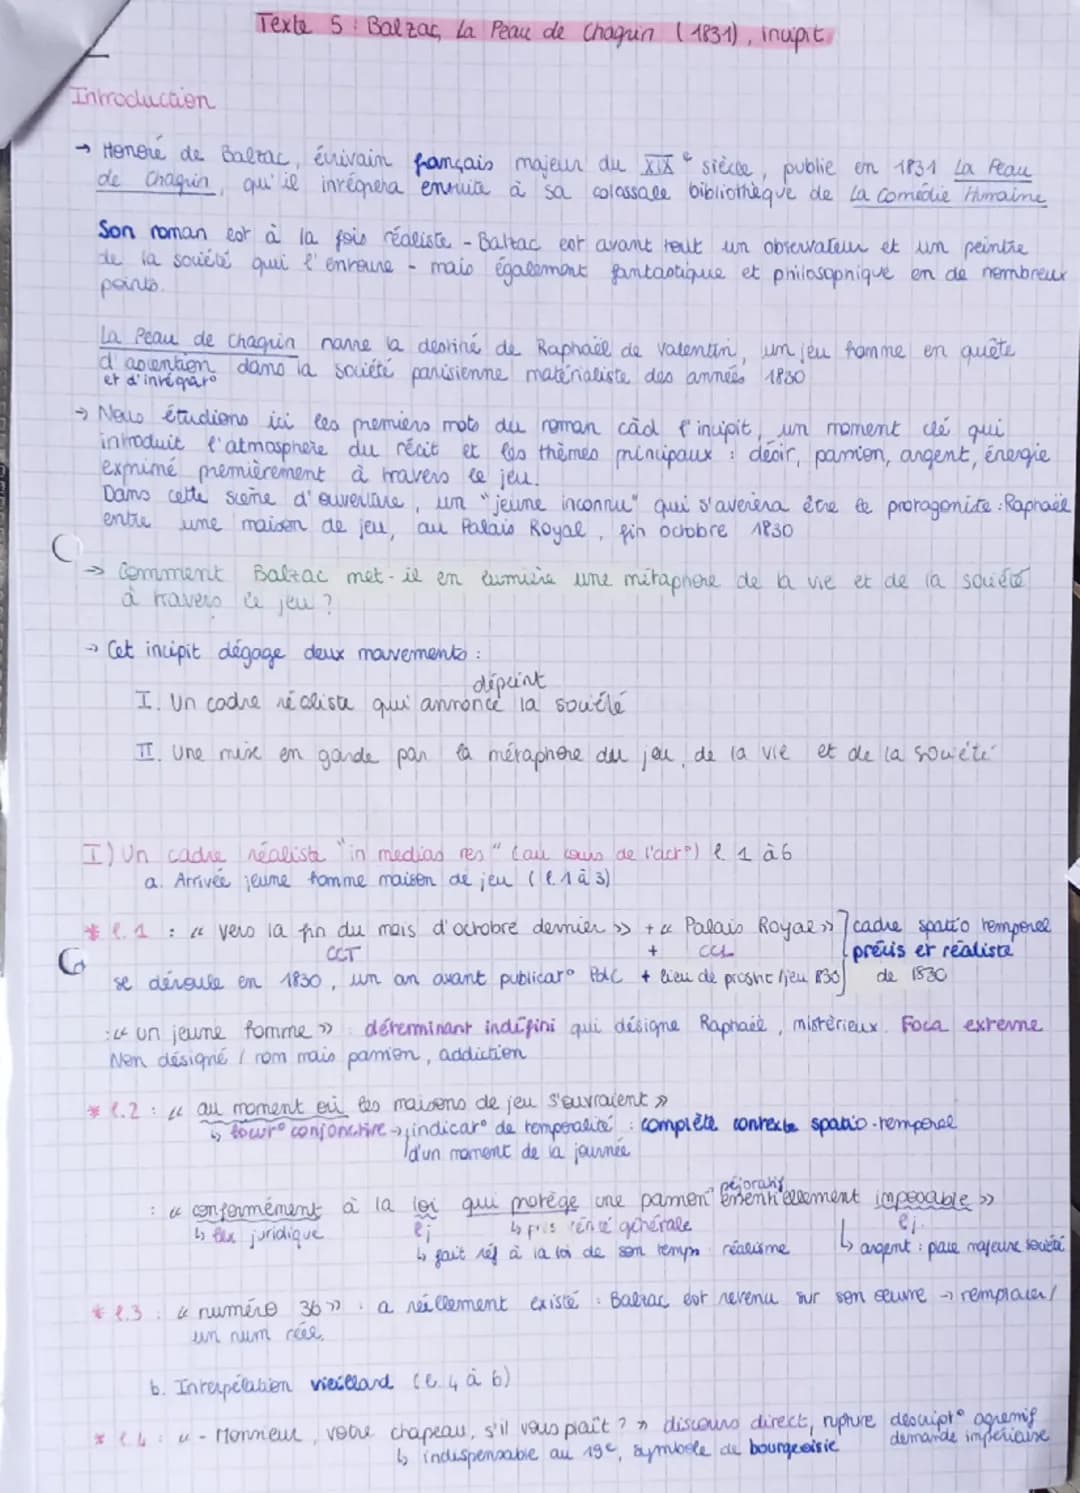 Texte 5 : Balzac, La Peau de Chagrin (1831), incipit
Introduction
→ Honoré de Balzac, écrivain français majeur du XIXe siècle, publie en 1831 La Peau
de Chagrin, qu'il intégrera ensuite à sa colossale bibliothèque de La Comédie Humaine
Son roman est à la fois réaliste - Balzac est avant tout un observateur et un peintre
de la société qui l'entoure - mais également fantastique et philosophique en de nombreux
points.
La Peau de Chagrin narre la destiné de Raphaël de Valentin, un jeu homme en quête
d'ascention dans la société parisienne matérialiste des années 1830
et d'intégrat°
→ Nous étudions ici les premiers mots du roman càd l'incipit, un moment clé qui
introduit l'atmosphère du récit et les thèmes principaux : désir, passion, argent, énergie
exprimé premièrement à travers le jeu.
Dans cette scène d'ouverture, un "jeune inconnu" qui s'avèrera être le protagoniste : Raphaël
entre une maison de jeu, au Palais Royal, fin octobre 1830
→ Comment Balzac met-il en lumière une métaphore de la vie et de la société
à travers le jeu ?
→ Cet incipit dégage deux mouvements :
dépeint
I. Un cadre réaliste qui annonce la société
II. Une mise en garde par la métaphore du jeu, de la vie et de la société
I) Un cadre réaliste "in medias res" (au cours de l'act°) l. 1 à 6
a. Arrivée jeune homme maison de jeu (l. 1 à 3)
* l. 1 : « vers la fin du mois d'octobre dernier » + « Palais Royal » cadre spatio temporel
CCT + CCL précis et réaliste
se déroule en 1830, un an avant publicat° PdC + lieu de prostit°/jeu 1830 de 1830
: « un jeune homme » : déterminant indéfini qui désigne Raphaël, mistèrieux. Foca externe
Non désigné / nom mais passion, addiction
* l. 2 : « au moment où les maisons de jeu s'ouvraient »
↳ locut° conjonctive → indicat° de temporalité : complète contexte spatio-temporel
d'un moment de la journée
péjoratif
: « conformément à la loi qui protège une passion essentiellement imposable »
↳ lex juridique lj ↳ prst vérité générale lj.
↳ fait réf à la loi de son temps réalisme ↳ argent : place majeure société
* l. 3 : « numéro 36 » : a réellement existé : Balzac est revenu sur son oeuvre → remplacer /
un num réel.
b. Interpélation vieillard (l. 4 à 6)
* l. 4 : « - Monsieur, votre chapeau, s'il vous plaît ? » discours direct, rupture descript° agressif
demande impériaise
↳ indispensable au 19e, symbole de bourgeoisie